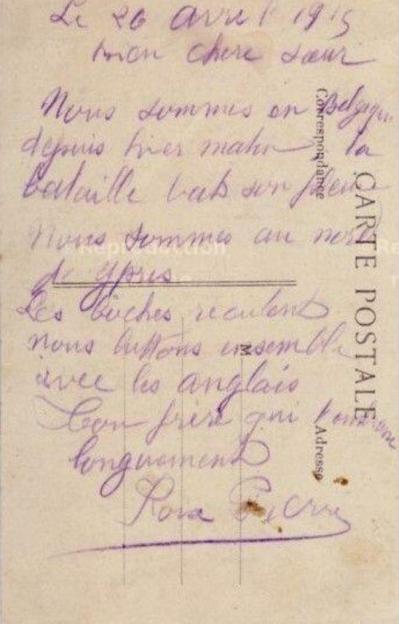 Le 26 avril 1915
mon chere sœur
Nous sommes en Belgique
depuis hier matin la
bataille bats son plein
Nous sommes au nord
de Ypres
Les boches reculent
nous luttons ensemble
avec les anglais
Ton frère qui t'embrasse
longuement
Pierre
CARTE POSTALE
Correspondance
M
Adresse